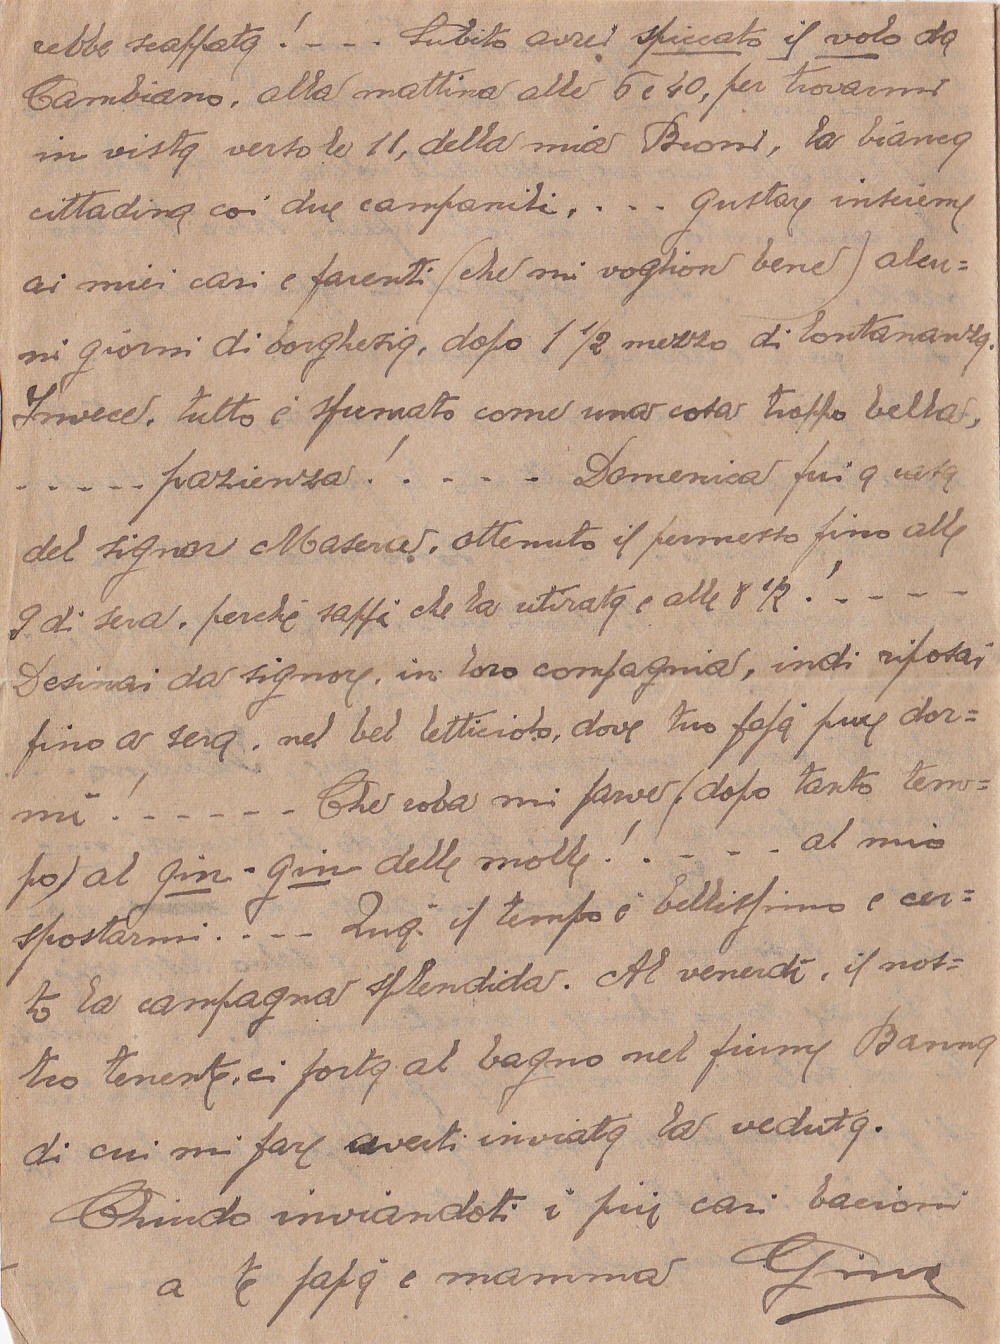 rebbe scappata!.... Subito avrei spiccato il volo da
Cambiano, alla mattina alle 6 e 40, per trovarmi
in vista verso le 11, della mia Broni, la bianca
cittadina coi due campanili, .... gustare insieme
ai miei cari e parenti (che mi voglion bene) alcu=
ni giorni di borghesia, dopo 1 1/2 mezzo di lontananza.
Invece, tutto è sfumato come una cosa troppo bella,
..... pazienza!..... Domenica fui a casa
del signor Masera, ottenuto il permesso fino alle
9 di sera, perchè sappi che la ritirata è alle 8 1/2!....
Desinai da signore, in loro compagnia, indi riposai
fino a sera, nel bel letticiolo, dove tuo papà pure dor=
mì!...... Che roba mi parve, (dopo tanto tem=
po) al gin-gin delle molle!..... al mio
spostarmi.... Quà il tempo è bellissimo e cer=
to la campagna splendida. Al venerdì, il nos=
tro tenente, ci porta al bagno nel fiume Banna
di cui mi pare averti inviata la veduta.
Chiudo inviandoti i più cari bacioni
a te papà e mamma Gino